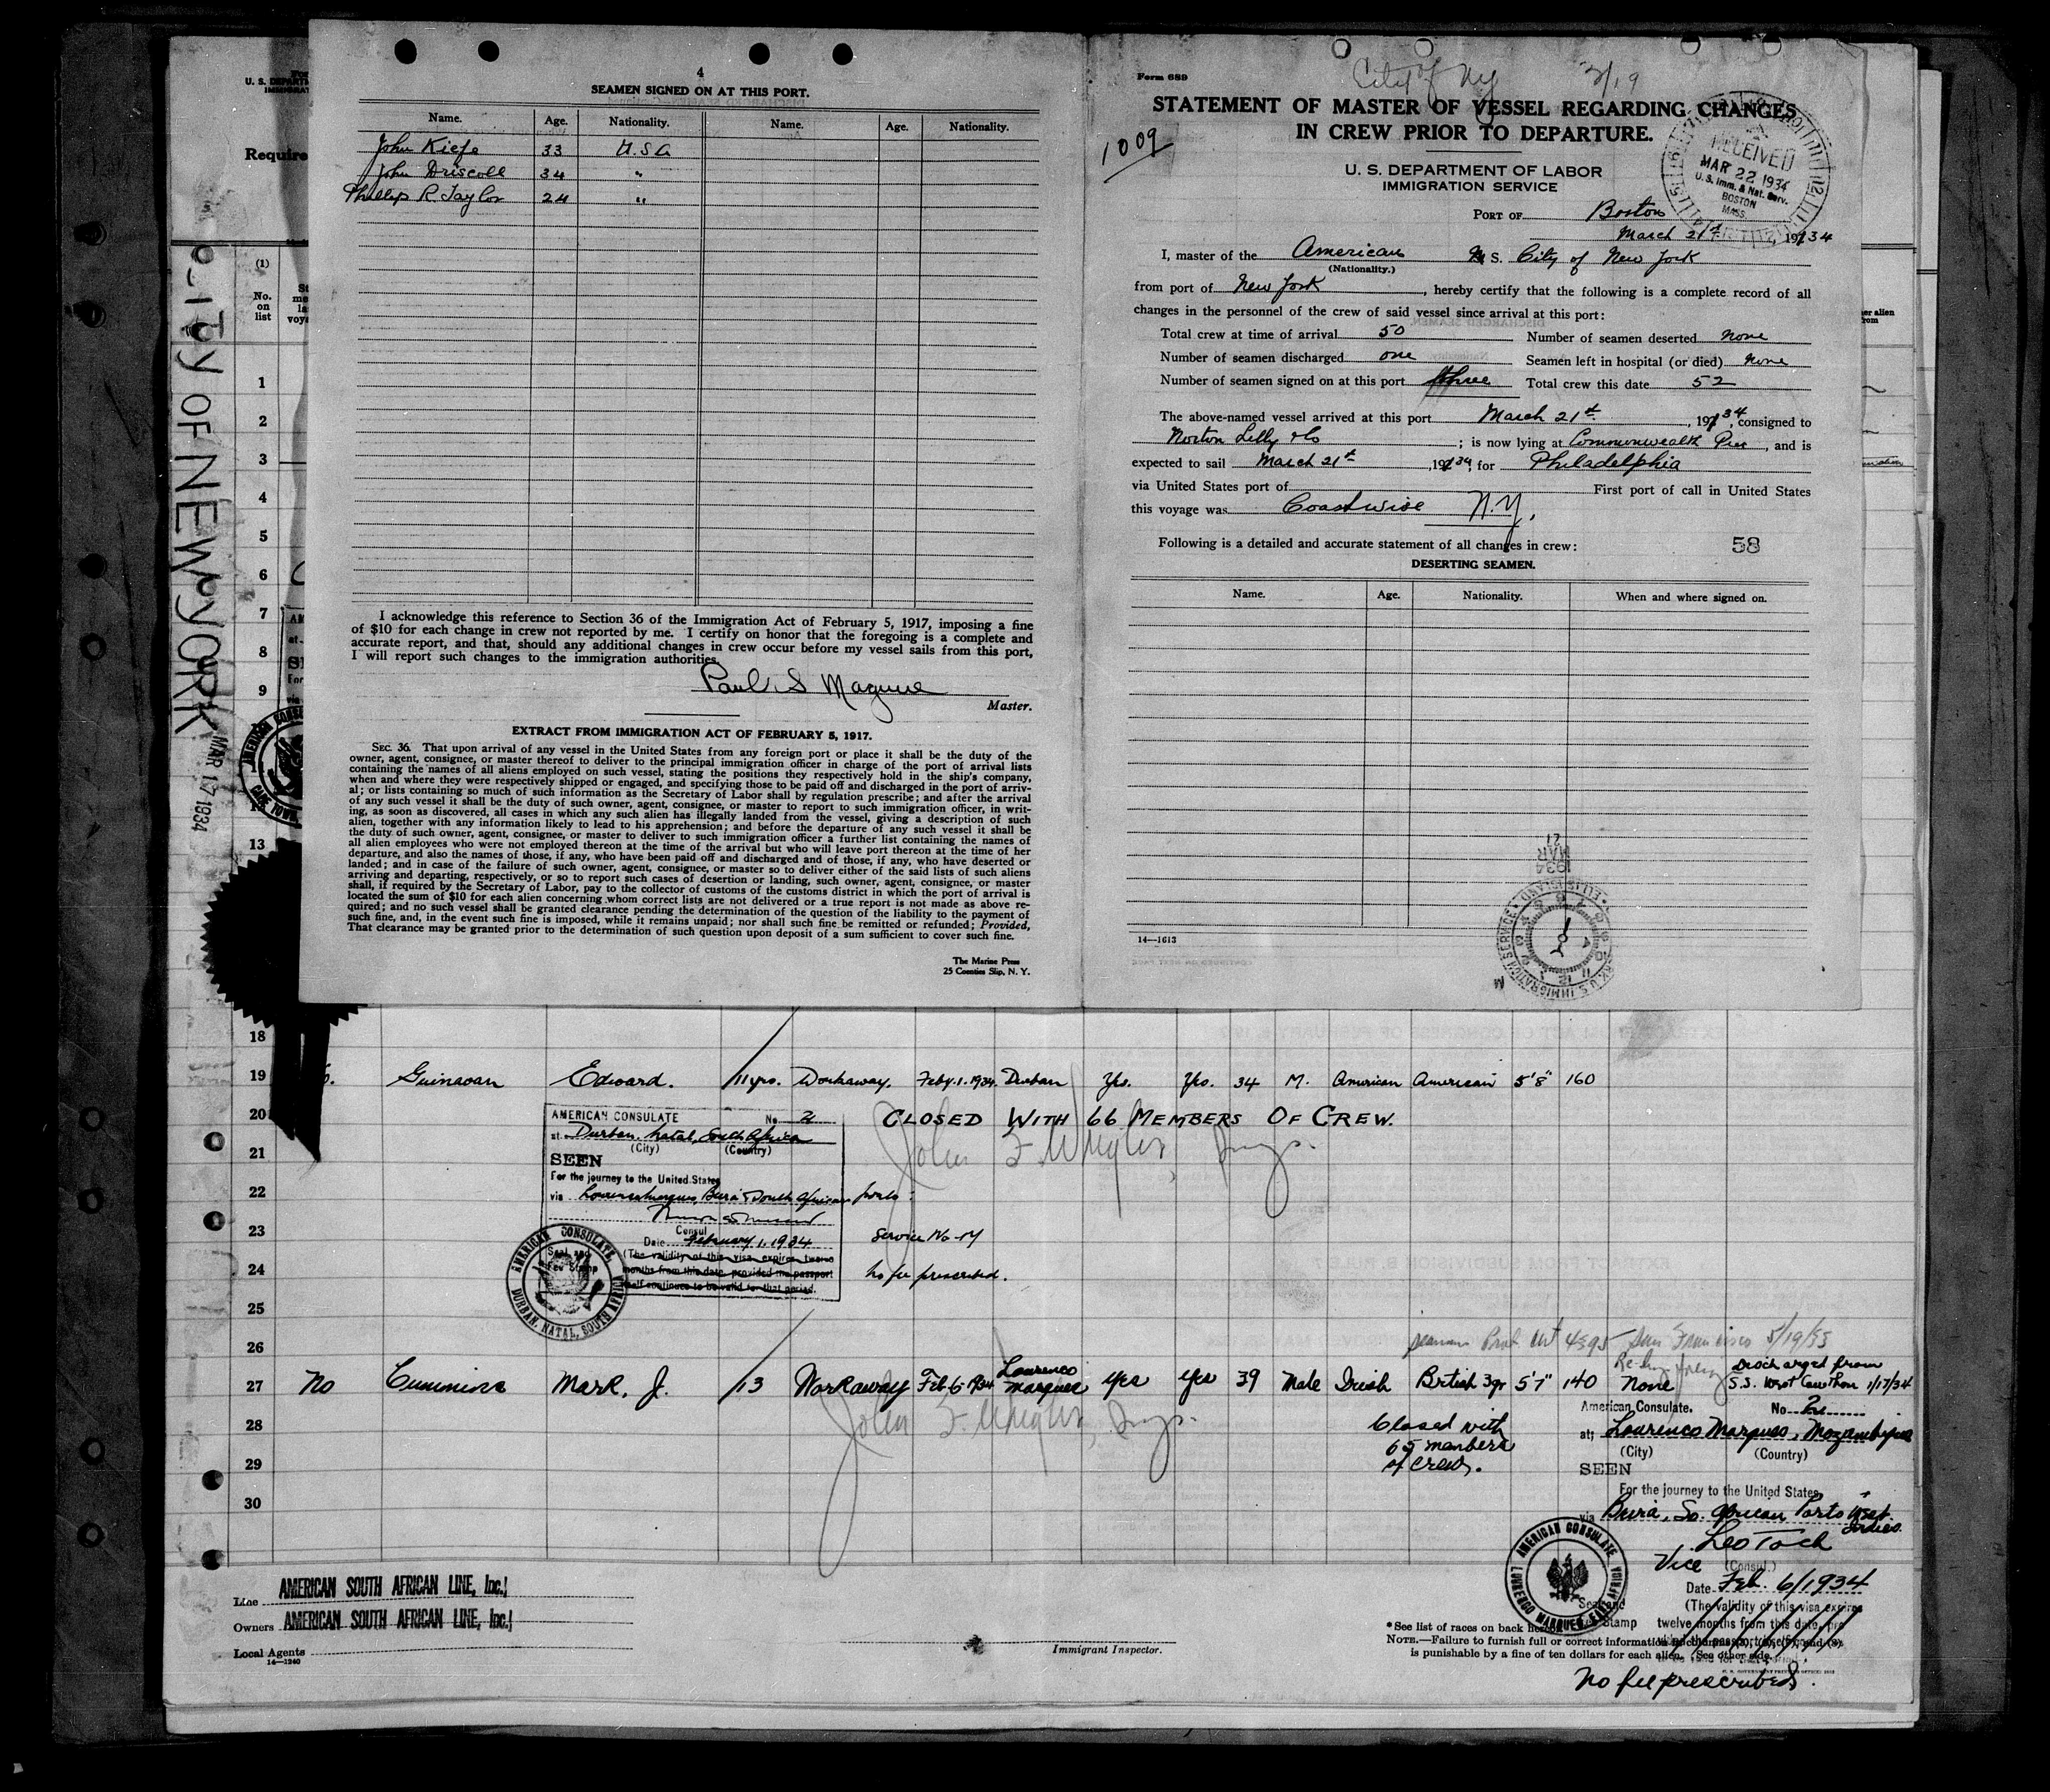 4
SEAMEN SIGNED ON AT THIS PORT.
Name. Age. Nationality. Name. Age. Nationality.
John Kiefe 33 U.S.A
John Driscoll 34 "
Phillip R. Taylor 24 "
I acknowledge this reference to Section 36 of the Immigration Act of February 5, 1917, imposing a fine
of $10 for each change in crew not reported by me. I certify on honor that the foregoing is a complete and
accurate report, and that, should any additional changes in crew occur before my vessel sails from this port,
I will report such changes to the immigration authorities.
Paul S Maguire
Master.
EXTRACT FROM IMMIGRATION ACT OF FEBRUARY 5, 1917.
SEC. 36. That upon arrival of any vessel in the United States from any foreign port or place it shall be the duty of the
owner, agent, consignee, or master thereof to deliver to the principal immigration officer in charge of the port of arrival lists
containing the names of all aliens employed on such vessel, stating the positions they respectively hold in the ship's company,
when and where they were respectively shipped or engaged, and specifying those to be paid off and discharged in the port of arriv-
al; or lists containing so much of such information as the Secretary of Labor shall by regulation prescribe; and after the arrival
of any such vessel it shall be the duty of such owner, agent, consignee, or master to report to such immigration officer, in writ-
ing, as soon as discovered, all cases in which any such alien has illegally landed from the vessel, giving a description of such
alien, together with any information likely to lead to his apprehension; and before the departure of any such vessel it shall be
the duty of such owner, agent, consignee, or master to deliver to such immigration officer a further list containing the names of
all alien employees who were not employed thereon at the time of the arrival but who will leave port thereon at the time of her
departure, and also the names of those, if any, who have been paid off and discharged and of those, if any, who have deserted or
landed; and in case of the failure of such owner, agent, consignee, or master so to deliver either of the said lists of such aliens
arriving and departing, respectively, or so to report such cases of desertion or landing, such owner, agent, consignee, or master
shall, if required by the Secretary of Labor, pay to the collector of customs of the customs district in which the port of arrival is
located the sum of $10 for each alien concerning whom correct lists are not delivered or a true report is not made as above re-
quired; and no such vessel shall be granted clearance pending the determination of the question of the liability to the payment of
such fine, and, in the event such fine is imposed, while it remains unpaid; nor shall such fine be remitted or refunded; Provided,
That clearance may be granted prior to the determination of such question upon deposit of a sum sufficient to cover such fine.
The Marine Press
25 Coenties Slip, N. Y.
Form 689
City of NY 3/19
STATEMENT OF MASTER OF VESSEL REGARDING CHANGES
IN CREW PRIOR TO DEPARTURE.
1009
U. S. DEPARTMENT OF LABOR
IMMIGRATION SERVICE
RECEIVED
MAR 22 1934
U. S. Imm. & Nat. Serv.
BOSTON
MASS.
PORT OF Boston
March 21st, 1934
I, master of the American M S. City of New York
(Nationality.)
from port of New York, hereby certify that the following is a complete record of all
changes in the personnel of the crew of said vessel since arrival at this port:
Total crew at time of arrival 50 Number of seamen deserted none
Number of seamen discharged one Seamen left in hospital (or died) none
Number of seamen signed on at this port three Total crew this date 52
The above-named vessel arrived at this port March 21st, 1934, consigned to
Norton Lilly & Co; is now lying at Commonwealth Pier, and is
expected to sail March 21st, 1934, for Philadelphia
via United States port of First port of call in United States
this voyage was Coastwise N.Y.
Following is a detailed and accurate statement of all changes in crew: 58
DESERTING SEAMEN.
Name. Age. Nationality. When and where signed on.
1934
MAR
21
14—1613
CITY OF NEW YORK
MAR 17 1934
Require
(1)
No.
on
list
1
2
3
4
5
6
7
8
9
13
18
19 Guinavan Edward. 11 yrs. Workaway. Feby. 1. 1934. Durban Yes. Yes. 34 M. American American 5'8" 160
20 CLOSED WITH 66 MEMBERS OF CREW.
21
22
23
24
25
26
AMERICAN CONSULATE No 2
at Durban, Natal, South Africa
(City) (Country)
SEEN
For the journey to the United States
via Lourenco Marques, Beira & South African ports
Consul
Date February 1, 1934
(The validity of this visa expires twelve
months from this date, provided the passport
itself continues to be valid for that period.
Service No. 14
No fee prescribed.
AMERICAN CONSULATE
DURBAN, NATAL, SOUTH AFRICA
San Francisco 5/19/33
27 No Cummins Mark, J. 13 Workaway Feb. 6. 1934 Lourenco Marques yes yes 39 Male Irish British 5'7" 140 None Discharged from
S.S. West Cawthon 1/17/34
28
29
30
Closed with
65 members
of crew.
American Consulate. No.
at Lourenco Marques, Mozambique
(City) (Country)
SEEN
For the journey to the United States
via Beira, So. African Ports West Indies
Leo Toch
Vice (Consul.)
Date Feb. 6/1934
(The validity of this visa expires
twelve months from this date, pro
No fee prescribed.
AMERICAN CONSULATE
LOURENCO MARQUES, EAST AFRICA
Line AMERICAN SOUTH AFRICAN LINE, Inc.
Owners AMERICAN SOUTH AFRICAN LINE, Inc.
Local Agents
14—1240
Immigrant Inspector.
*See list of races on back hereof.
NOTE.—Failure to furnish full or correct information
is punishable by a fine of ten dollars for each alien. (See other side.)